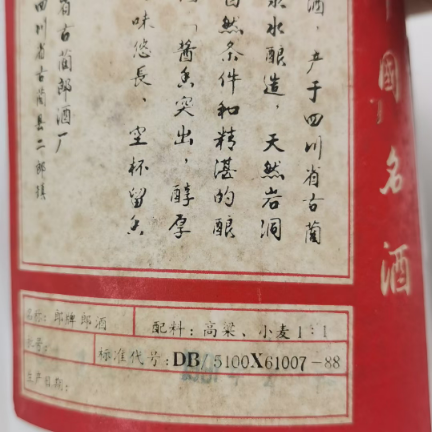 國名酒
酒，产于四川省古蔺
泉水酿造，天然岩洞
自然条件和精湛的酿
「酱香突出，醇厚
味悠長，空杯留香
省古蔺郎酒厂
四川省古蔺县二郎镇
名称：郎牌郎酒
配料：高粱、小麦1：1
批号：
标准代号：DB/5100X61007-88
生产日期：